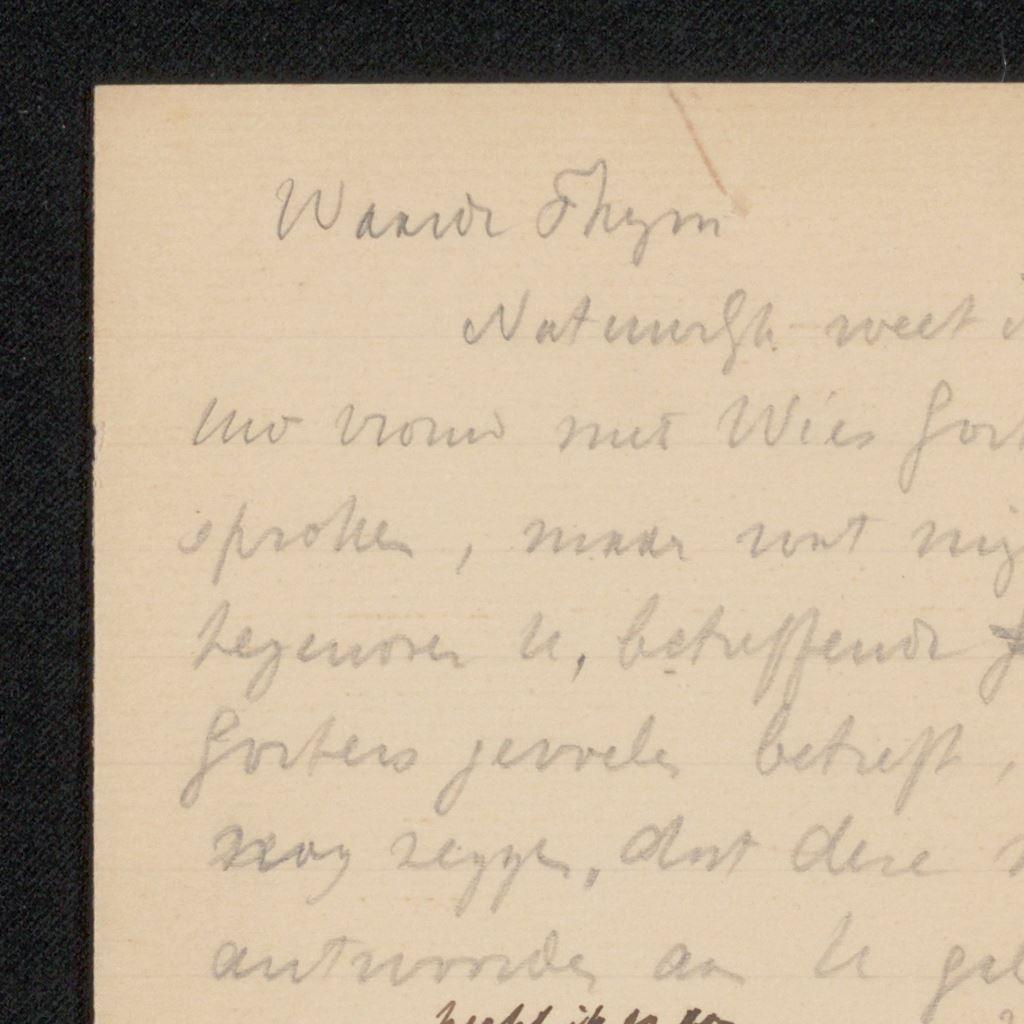 Waarde Thym
Natuurlijk weet
uw vriend met Wies Gort
sproken, maar wat mij
tegenover U, betreffende
Gorters gevoelen betreft,
nog zeggen, dat deze
antwoorden aan U gel